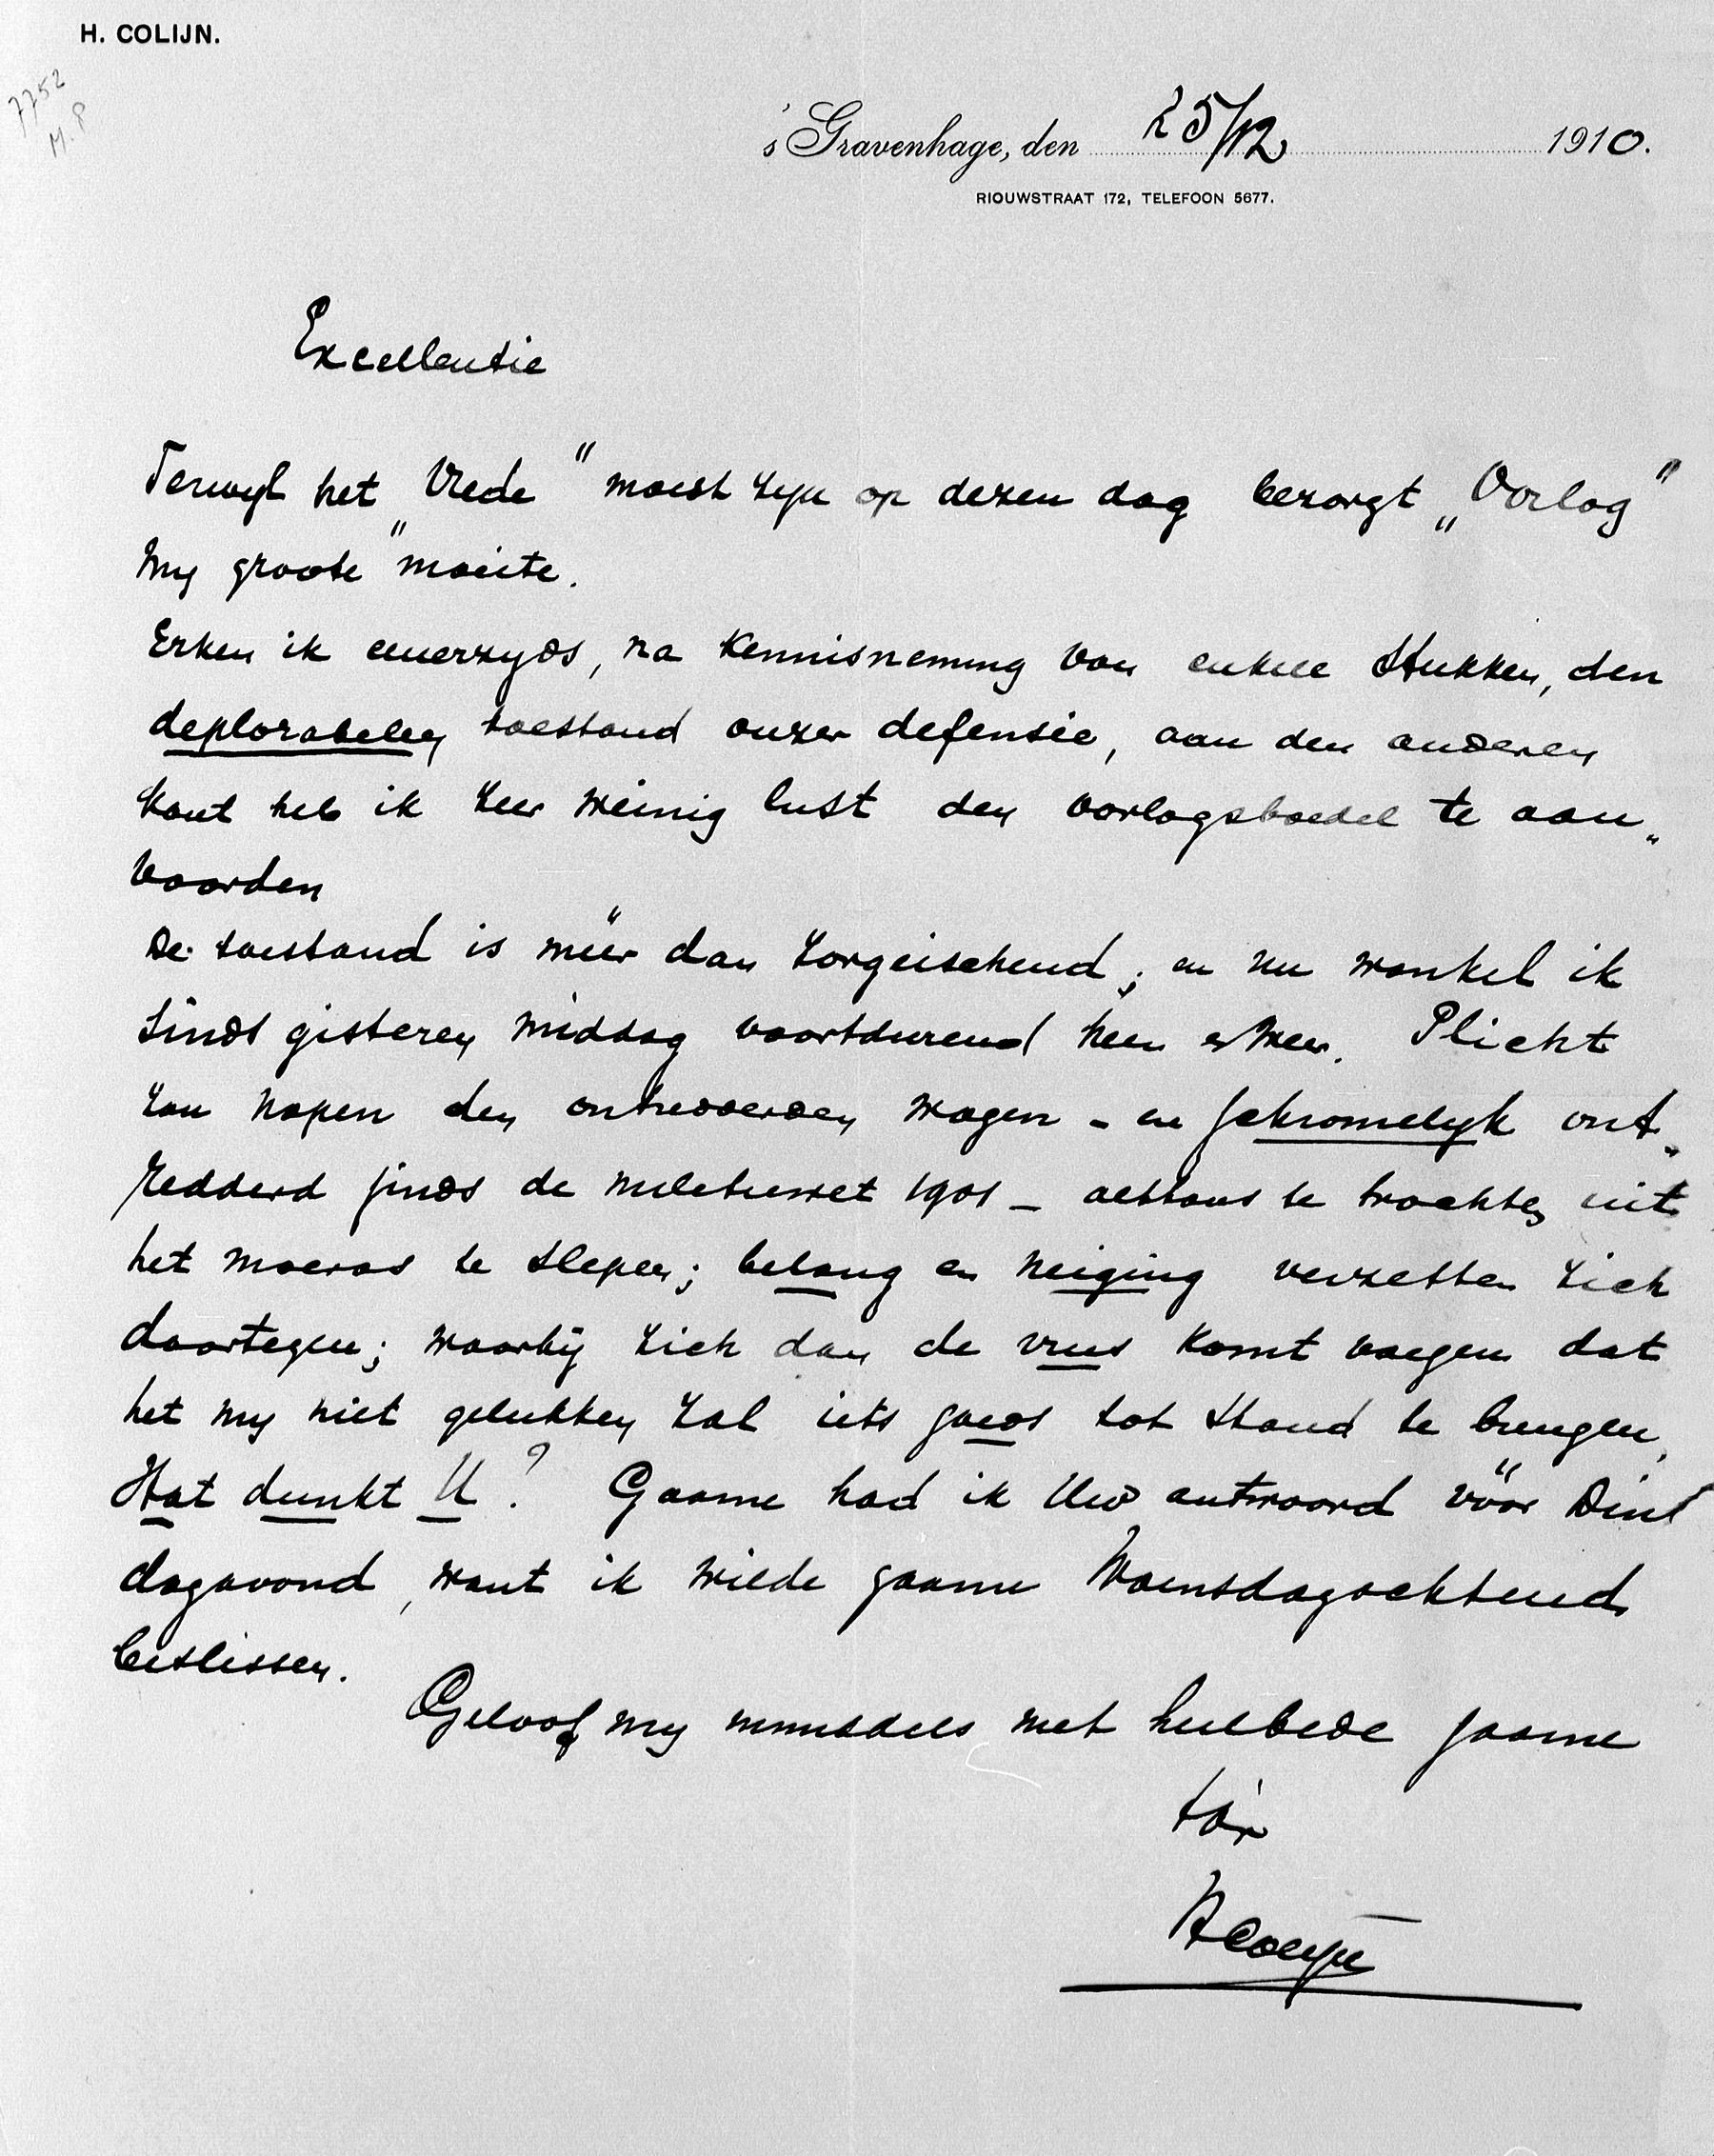 H. COLIJN.
7752
M. P
's Gravenhage, den 25/12 1910.
RIOUWSTRAAT 172, TELEFOON 5677.
Excellentie
Terwijl het „Vrede" moest zijn op dezen dag bezorgt „Oorlog"
mij groote moeite.
Erken ik eenerzijds, na kennisneming van enkele stukken, den
deplorabelen toestand onzer defensie, aan den anderen
kant heb ik zeer weinig lust den oorlogsboedel te aan„
vaarden
De toestand is méér dan zorgeischend; en nu wankel ik
sinds gisteren middag voortdurend heen en weer. Plicht
zou nopen den ontredderden wagen - en schromelijk ont„
redderd sinds de militiewet 1901 - althans te trachten uit
het moeras te slepen; belang en neiging verzetten zich
daartegen; waarbij zich dan de vrees komt voegen dat
het mij niet gelukken zal iets goeds tot stand te brengen.
Wat dunkt U? Gaarne had ik Uw antwoord vóór Dins
dagavond, want ik wilde gaarne Woensdagochtend
beslissen.
Geloof mij inmiddels met heilbede gaarne
HColijn